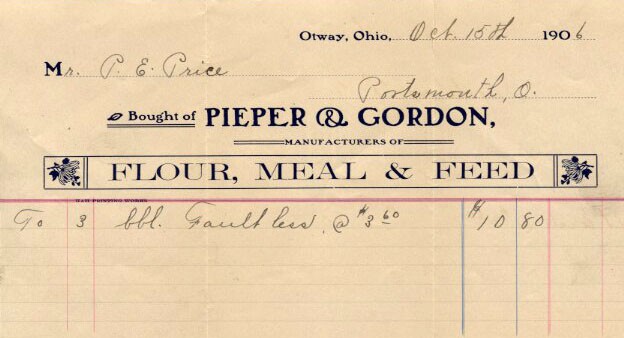 Otway, Ohio, Oct. 15th 1906
Mr. P. E. Price
Portsmouth, O.
Bought of PIEPER & GORDON,
MANUFACTURERS OF
FLOUR, MEAL & FEED
PRINTING WORKS
To 3 bbl. Faultless, @ $3.60 $10 80